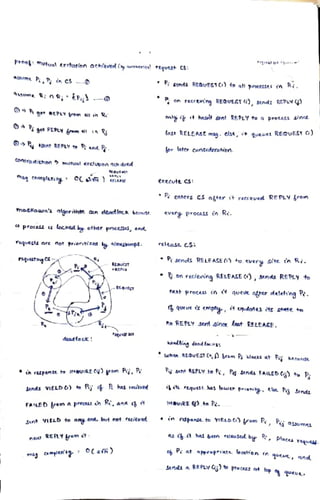 proof: mutual exclusion achieved (by contradiction)
assume Pi, Pj in CS —①
assume Ri ∩ Rj = {Pij} —②
① ⇒ Pi got REPLY from all in Ri
① ⇒ Pj got REPLY from all in Rj
② ⇒ Pij sent REPLY to Pi and Pj.
contradiction ⇒ mutual exclusion achieved
msg complexity: O(√n) REQUEST REPLY RELEASE
maekawa's algorithm can deadlock because
a process is locked by other processes, and
requests are not prioritized by timestamps.
requesting CS
REQUEST
REPLY
REQUEST
deadlock:
• in response to INQUIRE(j) from Pj, Pi
sends YIELD(i) to Pj if Pi has received
FAILED from a process in Ri, and if it
sent YIELD to any and, but not recieved
new REPLY from it.
msg complexity: O(√n)
request CS:
• Pi sends REQUEST(i) to all processes in Ri.
• Pj on recieving REQUEST(i), sends REPLY(j)
only if it hasn't sent REPLY to a process since
last RELEASE msg. else, it queues REQUEST(i)
for later consideration.
execute CS:
• Pi enters CS after it received REPLY from
every process in Ri.
release CS:
• Pi sends RELEASE(i) to every site in Ri.
• Pj on recieving RELEASE(i), sends REPLY to
next process in it queue after deleting Pi.
if queue is empty, it updates its state to
no REPLY sent since last RELEASE.
handling deadlocks:
• when REQUEST from Pi blocks at Pj because
Pj sent REPLY to Pk, Pj sends FAILED(j) to Pi
if its request has lower priority. else Pj sends
INQUIRE(j) to Pk.
• in response to YIELD(i) from Pi, Pj assumes
as if it has been released by Pi, places request
of Pi at appropriate location in queue, and
sends a REPLY(j) to process at top of queue.